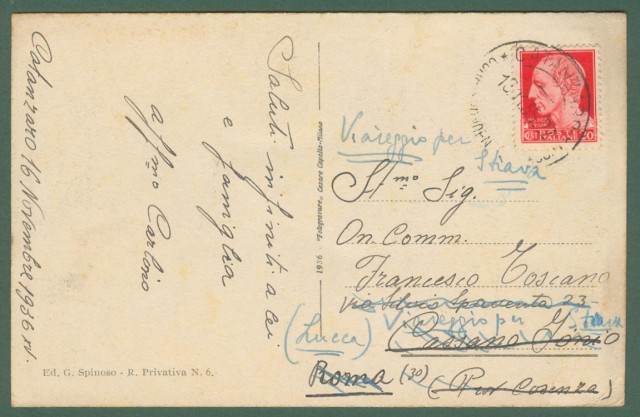 Catanzaro 16 Novembre 1936 XV.
Saluti infiniti a Lei
e famiglia
aff/mo Carlino
Ed. G. Spinoso - R. Privativa N. 6.
1936 "Fotogravure" Cesare Capello - Milano
CATANZARO
20
Viareggio per
Stiava
Ill.mo Sig.
On. Comm.
Francesco Toscano
Via Silvio Spaventa 23
Viareggio per Stiava
(Lucca)
Cassano Jonio
Roma (30) (Prov Cosenza)